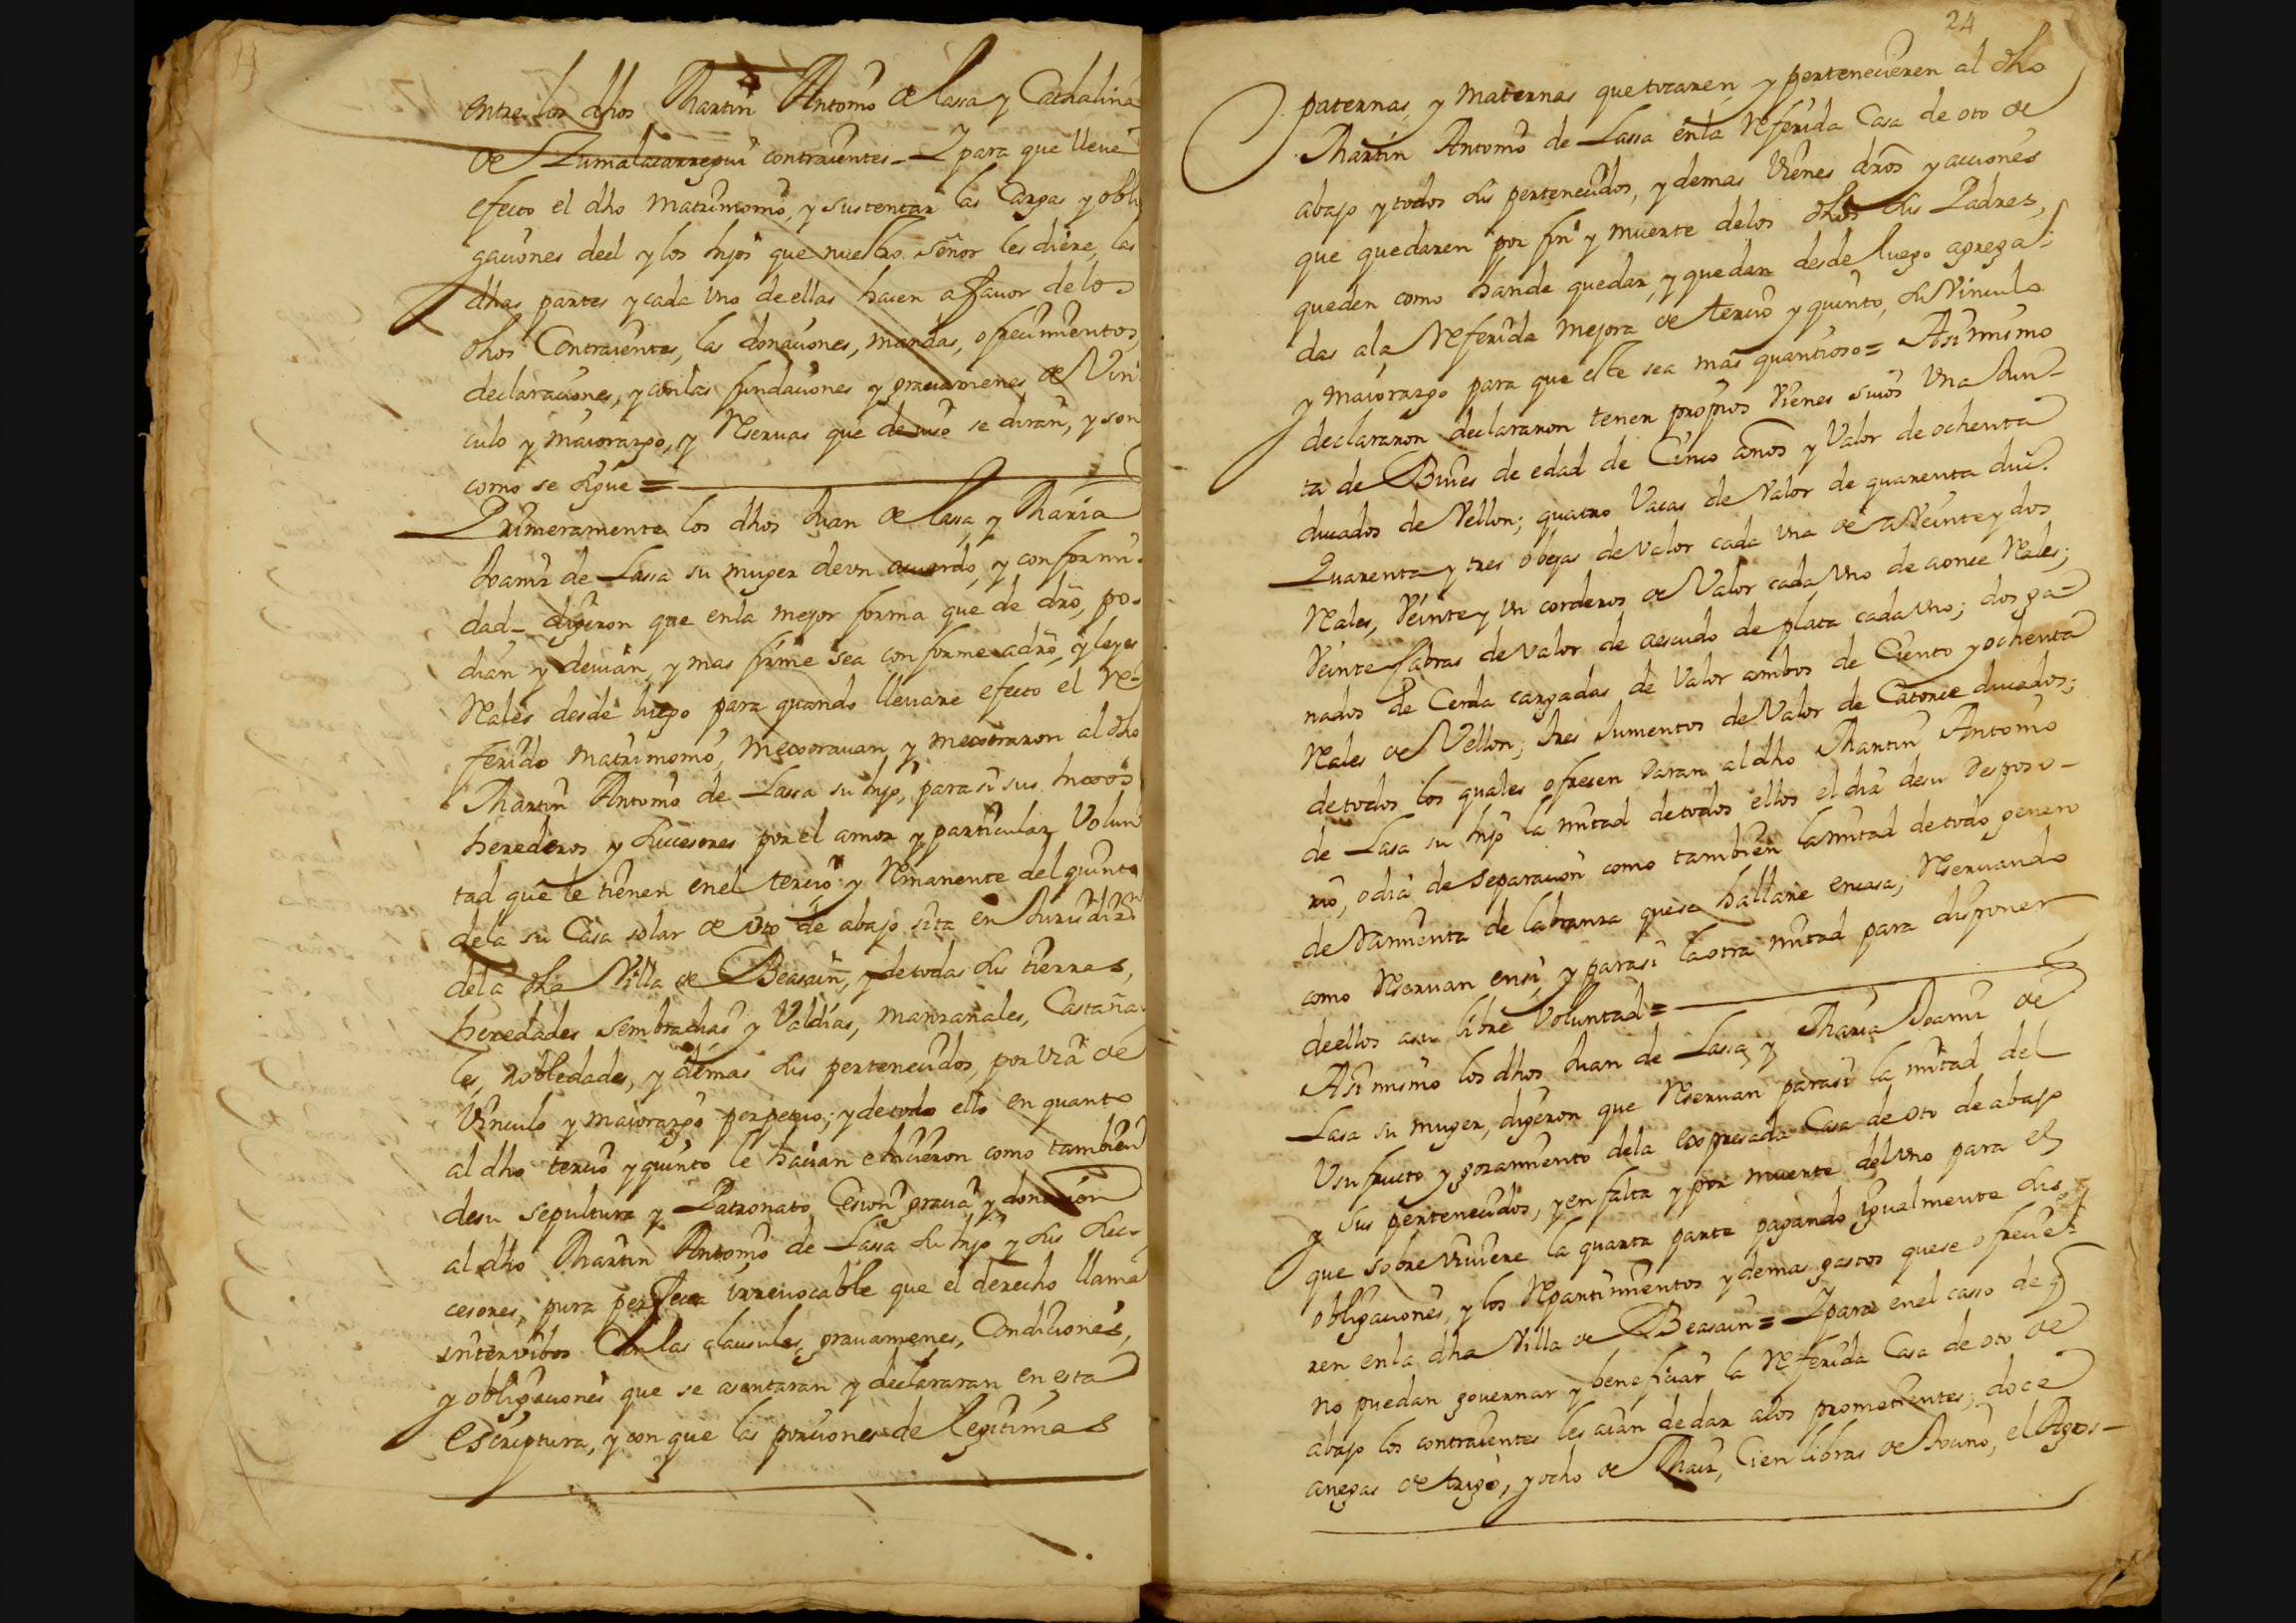 entre los dhos Martin Antonio de Lassa y Cathalina
de Zumalacarregui contraientes_ Y para que lleue
efecto el dho Matrimonio, y sustentar las Cargas y obli
gaciones deel y los hijos que nuestro Señor les diere, las
dhas partes y cada uno de ellas hacen a fauor de los
dhos Contraientes, las donaciones, mandas, ofrecimientos,
declaraciones, y con las fundaciones y grauamenes de Vin
culo y maiorazgo, y Reseruas que de iuso se diran, y son
como se sigue =
Primeramente los dhos Juan de Lassa, y Maria
Joaniz de Lassa su muger de vn acuerdo, y conformi-
dad_ digeron que enla mejor forma que de dro, po-
dian y deuian, y mas firme sea conforme adro, y leyes
Reales desde luego para quando lleuare efecto el Re-
ferido matrimonio, mexorauan y mexoraron al dho
Martin Antonio de Lassa su hijo, para si sus hixos
herederos y successores por el amor y particular Volun
tad que le tienen enel tercio y Remanente del quinto
dela su Casa solar de oto de abajo sita en Jurisdizn
dela dha Villa de Beasain, y de todas sus tierras,
heredades sembradias y Valdias, manzanales, Castaña-
les, Robledades, y demas sus pertenecidos, por via de
Vinculo y maiorazgo perpetuo; y de todo ello en quanto
al dho tercio y quinto le hacian e hicieron como tambien
desu sepultura y Patronato Cesion gracia y donacion
al dho Martin Antonio de Lassa su hijo y sus suc-
cesores, pura perfecta irreuocable que el derecho llama
intervibos Con las clausulas, grauamenes, Condiciones,
y obligaciones que se asentaran y declararan en esta
escriptura, y con que las porciones de legitimas
24
paternas, y maternas que tocaren, y pertenecieren al dho
Martin Antonio de Lassa enla Referida Casa de oto de
abajo y todos sus pertenecidos, y demas Vienes dros y acciones
que quedaren por fin y muerte delos dhos sus Padres,
queden como hande quedar, y quedan desde luego agrega-
das ala Referida mejora de tercio y quinto, su Vinculo
y maiorazgo para que este sea mas quantioso = Asi mismo
declararon declararon tener propios Vienes suios Una Jun-
ta de Bueies de edad de Cinco años y Valor de ochenta
ducados de Vellon; quatro Vacas de Valor de quarenta duc.
Quarenta y tres obejas de valor cada una de a Veinte y dos
Reales, Veinte y un corderos de Valor cada uno de a once Reales;
Veinte Cabras de valor de aescudo de plata cada uno; dos ga-
nados de Cerda cargadas de Valor ambos de Ciento y ochenta
Reales de Vellon; tres Jumentos de Valor de Catorce ducados;
detodos los quales ofrecen daran al dho Martin Antonio
de Lasa su hijo la mitad detodos ellos el dia desu Desposo-
rio, odia de separacion como tambien la mitad de todo genero
de Varmienta de labranza quese hallare encasa; Reseruando
como Reseruan ensi, y parasi la otra mitad para disponer
deellos asu libre Voluntad =
Asi mismo los dhos Juan de Lassa, y Maria Joaniz de
Lasa su muger, digeron que Reseruan parasi la mitad del
Usufructo y gozamiento dela expresada Casa de oto de abajo
y sus pertenecidos, y en falta y por muerte del uno para el
que sobre Viuiere la quarta parte pagando igualmente sus
obligaciones, y los Repartimientos y demas gastos quese ofrecie-
ren enla dha Villa de Beasain = Y para enel casso de q
no puedan gouernar y beneficiar la Referida Casa de oto de
abajo los contraientes les aian de dar alos prometientes; doce
anegas de trigo, y ocho de Maiz, Cien libras de tocino, el Agos-